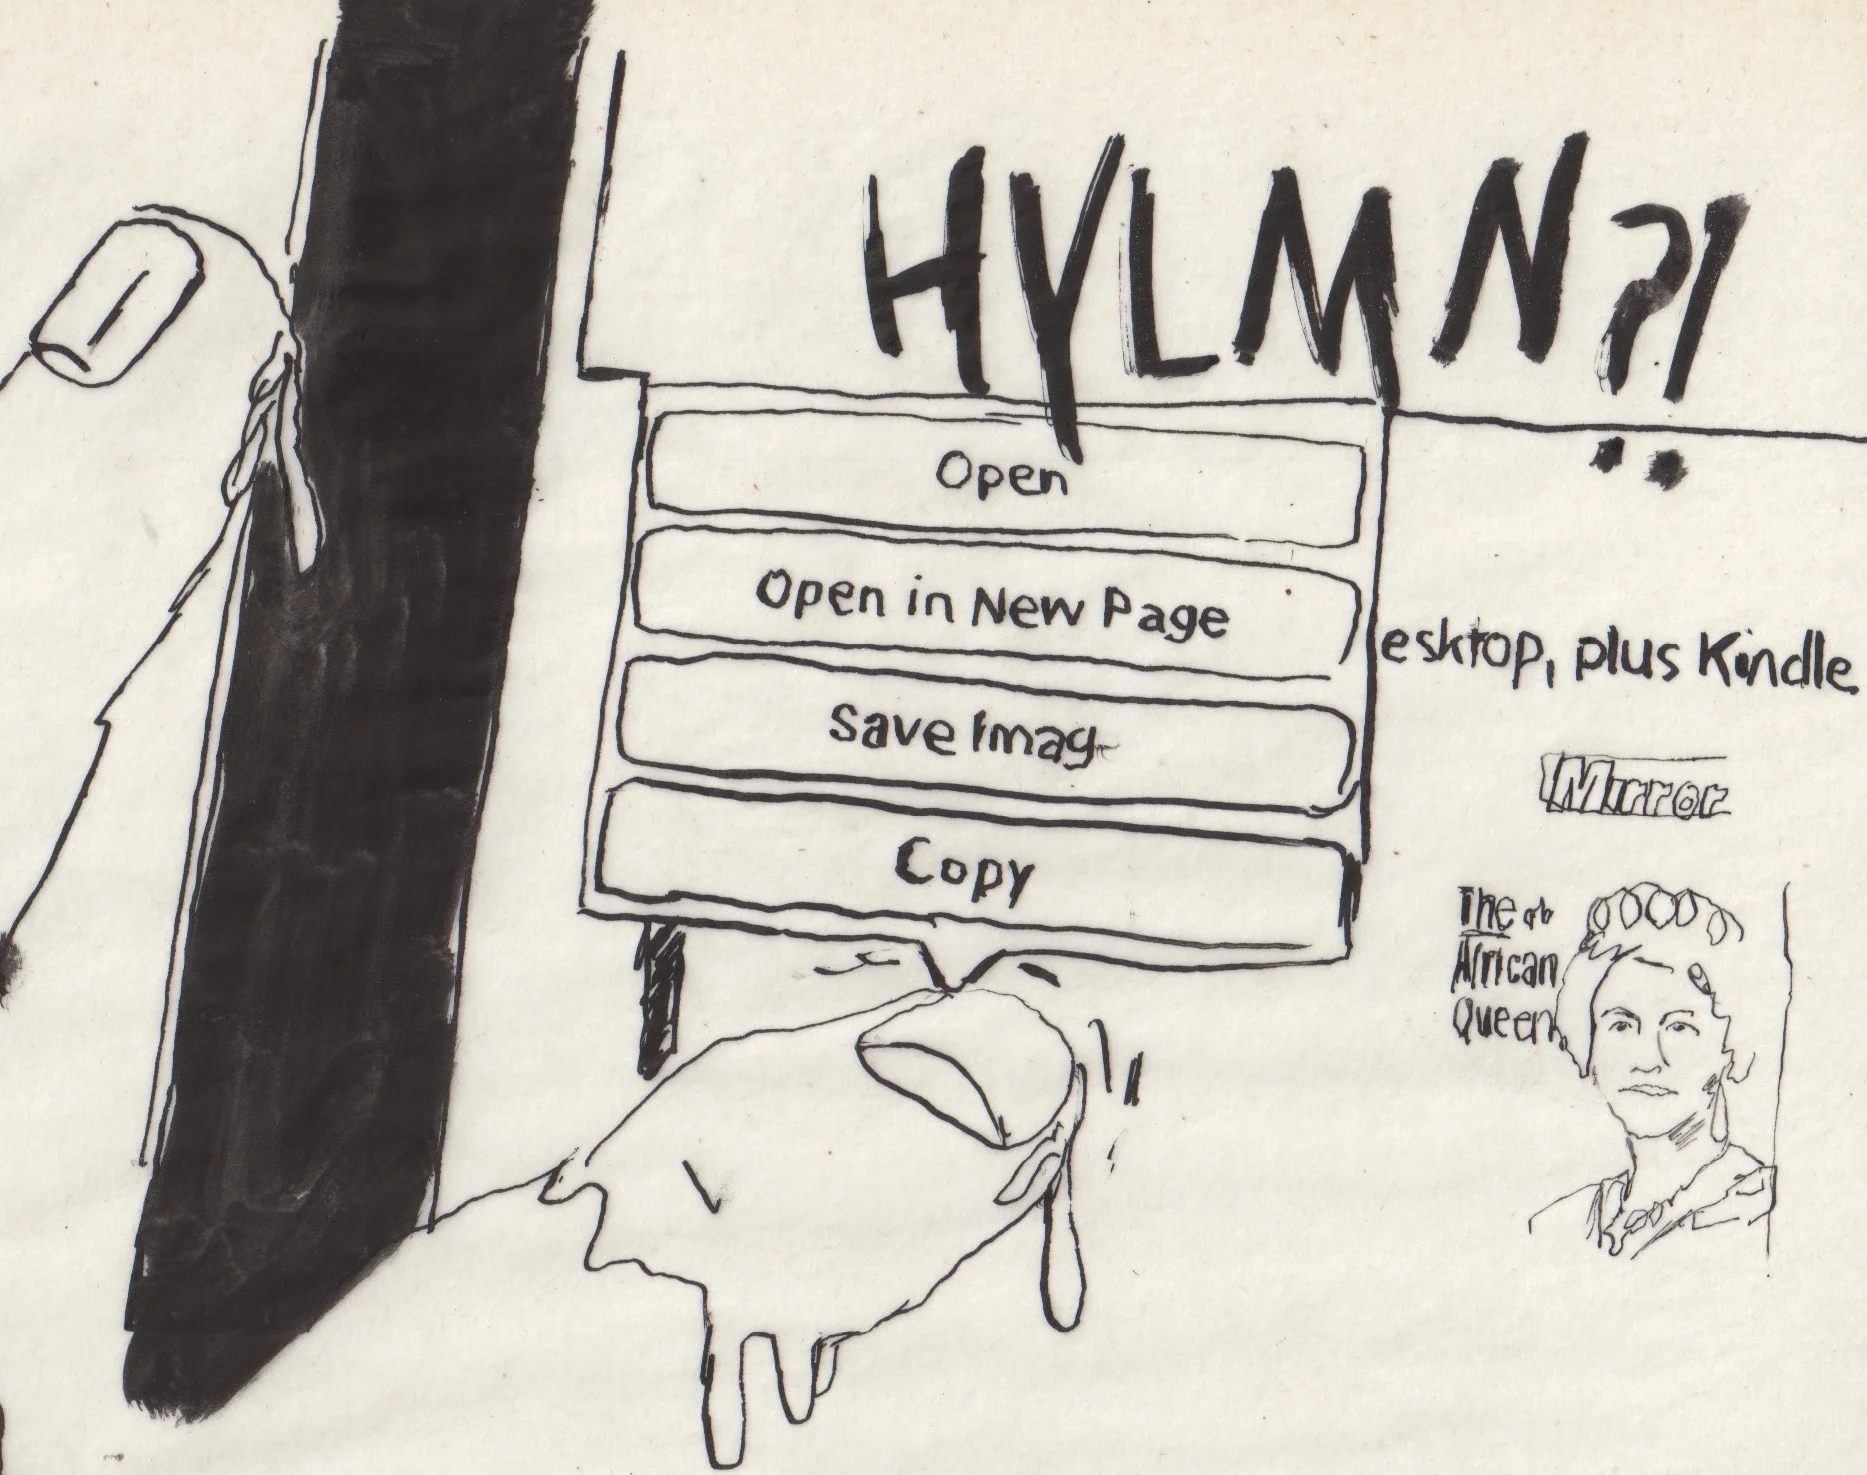 HYLMN?!
Open
Open in New Page
Save Imag
Copy
esktop, plus Kindle
Mirror
The
African
Queen